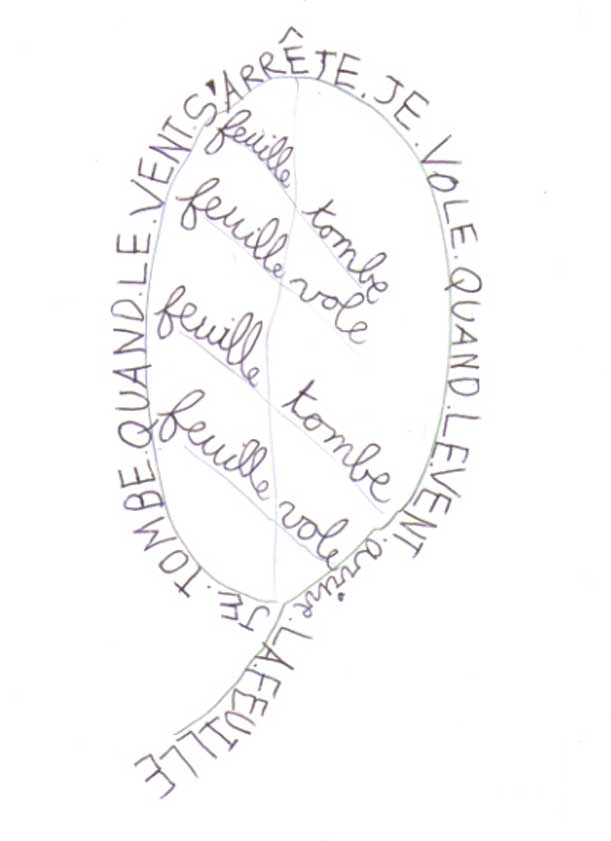 JE.TOMBE.QUAND.LE.VENT.S'ARRÊTE.JE.VOLE.QUAND.LE.VENT.arrive.LA.FEUILLE
feuille tombe
feuille vole
feuille tombe
feuille vole